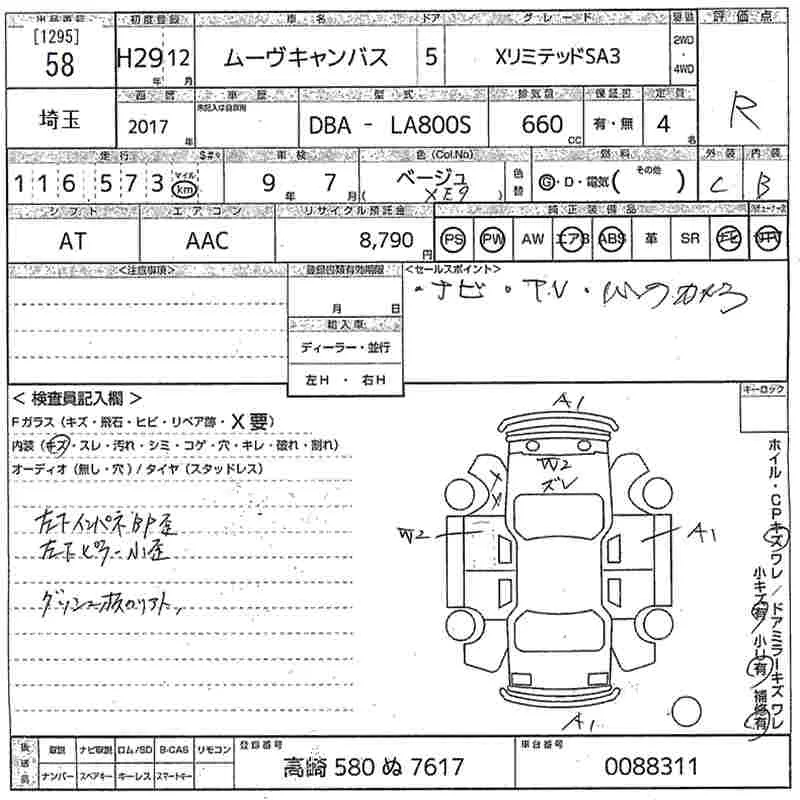 初度登録 車名 ドア グレード 評価点
[1295]
58
H29 12 ムーヴキャンバス 5 XリミテッドSA3 2WD・4WD
年 月
R
埼玉
西暦 車歴 型式 排気量 保証書 定員
2017年 DBA - LA800S 660cc 有・無 4名
走行 車検 色 (Col.No) 色替 燃料 外装 内装
116573 マイル km 9年 7月 ベージュ (XE9) G・D・電気( その他 ) C B
シフト エアコン リサイクル預託金 純正装備品
AT AAC 8,790円 PS PW AW エアB ABS 革 SR ナビ TV
<注意事項> 登録書類有効期限 <セールスポイント>
月 日
・ナビ・T.V・バックカメラ
輸入車
ディーラー・並行
左H ・ 右H
< 検査員記入欄 >
Fガラス (キズ・飛石・ヒビ・リペア跡・X要)
内装 (キズ・スレ・汚れ・シミ・コゲ・穴・キレ・破れ・割れ)
オーディオ (無し・穴) / タイヤ (スタッドレス)
左下インパネBP歪
左下ピラー小歪
キーロック
A1
W2
ズレ
X
X
W2
A1
A1
ホイル・CPキズワレ/ドアミラーキズワレ
小キズ有/小U有/補修有
取説 ナビ取説 ロム/SD B-CAS リモコン
ナンバー スペアキー キーレス スマートキー
登録番号
高崎 580 ぬ 7617
車台番号
0088311